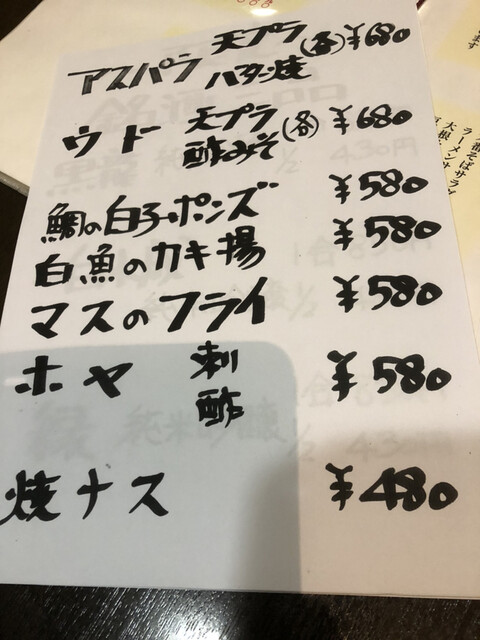 アスパラ 天プラ (各) ¥680
バター焼
ウド 天プラ (各) ¥680
酢みそ
鯛の白子ポンズ ¥580
白魚のカキ揚 ¥580
マスのフライ ¥580
ホヤ 刺 ¥580
酢
焼ナス ¥480